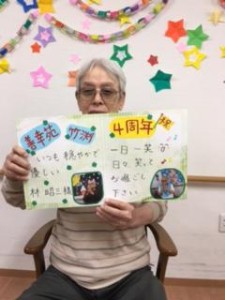 善幸苑 竹渕
いつも穏やかで
優しい
林 昭三様
4周年 祝
一日一笑
日々笑って
お過ごし
下さい